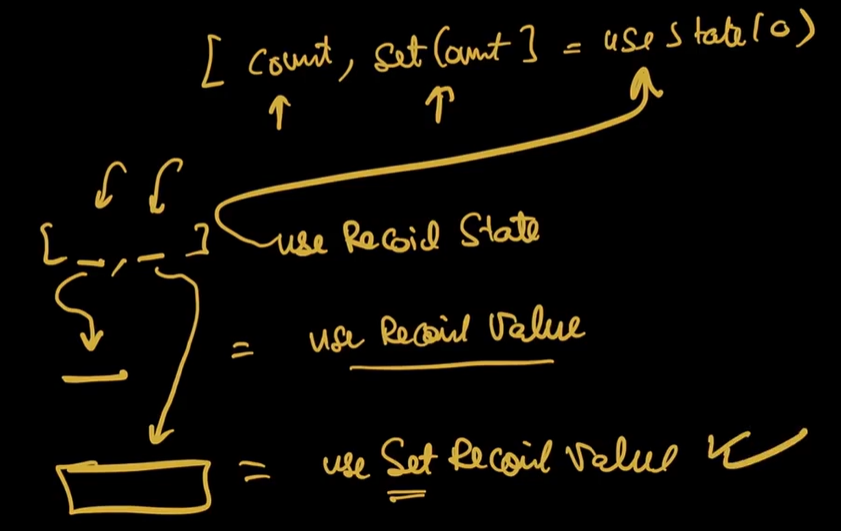 [ count, setCount ] = useState(0)
[ _, _ ] use Recoil State
= use Recoil Value
= use Set Recoil Value